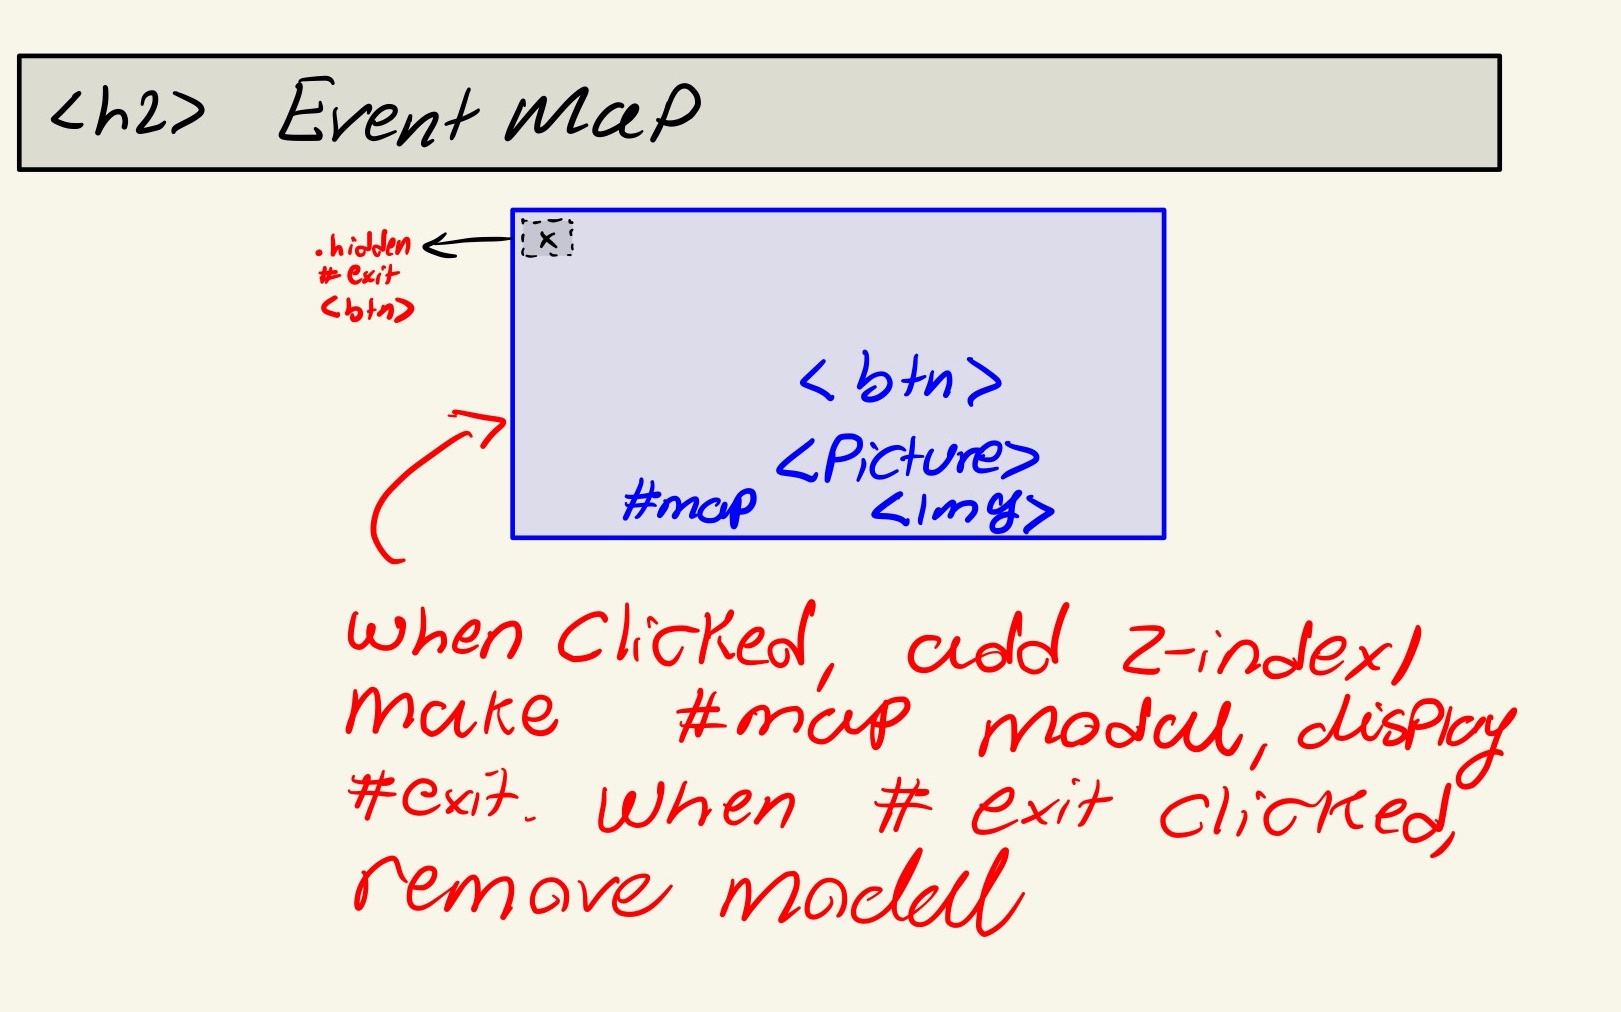 <h2> Event Map
x
.hidden
#exit
<btn>
<btn>
<Picture>
#map <img>
when clicked, add z-index,
make #map modal, display
#exit. when #exit clicked,
remove modal